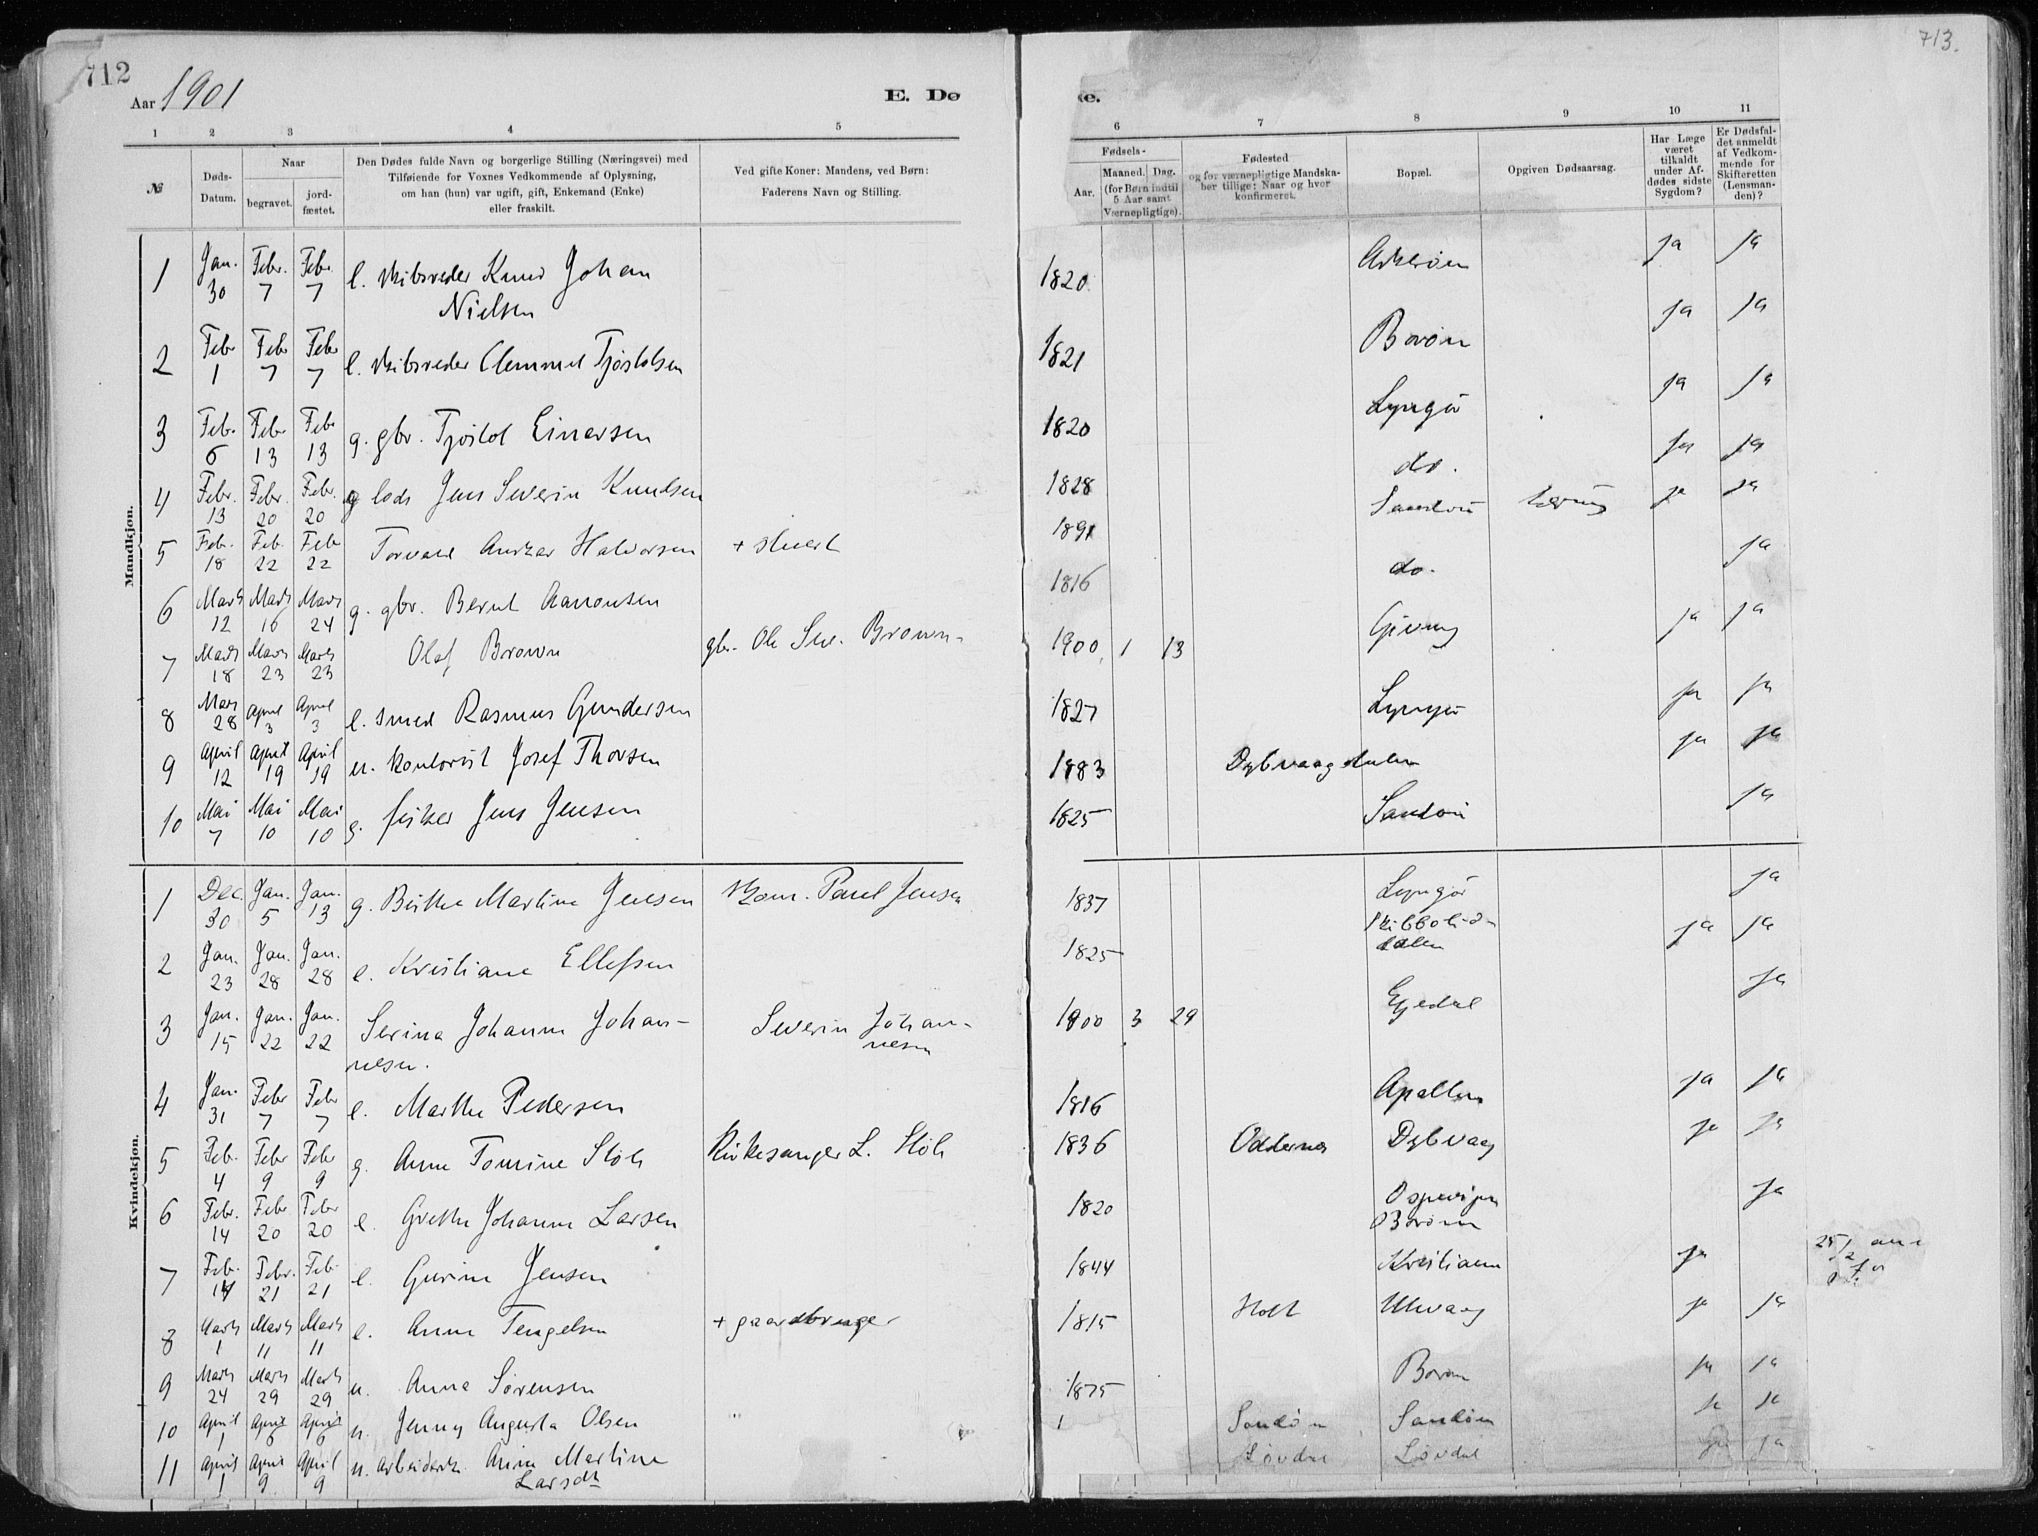 712
713.
Aar 1901
E. Dø
ke.
1 2 3 4 5 6 7 8 9 10 11
№
Døds-Datum.
Naar
begravet.
jord-fæstet.
Den Dødes fulde Navn og borgerlige Stilling (Næringsvei) med
Tilføiende for Voxnes Vedkommende af Oplysning,
om han (hun) var ugift, gift, Enkemand (Enke)
eller fraskilt.
Ved gifte Koner: Mandens, ved Børn:
Faderens Navn og Stilling.
Fødsels-
Aar.
Maaned. Dag.
(for Børn indtil
5 Aar samt
Værnepligtige).
Fødested
og for værnepligtige Mandska-
ber tillige: Naar og hvor
konfirmeret.
Bopæl.
Opgiven Dødsaarsag.
Har Læge
været
tilkaldt
under Af-
dødes sidste
Sygdom?
Er Dødsfal-
det anmeldt
af Vedkom-
mende for
Skifteretten
(Lensman-
den)?
Mandkjøn.
1 Jan. 30 Febr. 7 Febr. 7 e. skibsreder Knud Johan 1820 Askerøen ja ja
Nielsen
2 Febr 1 Febr 7 Febr 7 e. skibsreder Clemmet Tjøstolsen 1821 Borøen ja ja
3 Feb. 6 Febr 13 Febr 13 g. gbr. Tjøstol Einersen 1820 Lyngør ja ja
4 Febr. 13 Febr. 20 Febr. 20 g lods Jens Severin Knudsen 1828 do. ja ja
5 Feb. 18 Feb. 22 Febr 22 Torvald Anskar Halvorsen + stuert 1891 Sandøen ja ja
6 Marts 12 Marts 16 Marts 24 g. gbr. Bernt Aanonsen 1816 do. ja
7 Marts 18 Marts 23 Marts 23 Olaf Brown gbr. Ole Sev. Brown 1900 1 13 Gjeving ja ja
8 Mars 28 April 3 April 3 e. smed Rasmus Gundersen 1827 Lyngør ja ja
9 April 12 April 19 April 19 u. kontorist Josef Thorsen 1883 Dybvaag ja ja
10 Mai 7 Mai 10 Mai 10 g. fisker Jens Jensen 1825 Sandøen ja
Kvindekjøn.
1 Dec. 30 Jan. 5 Jan. 13 g. Birthe Martine Jensen Paul Jensen 1837 Lyngør ja
2 Jan. 23 Jan. 28 Jan. 28 e. Kristiane Ellefsen 1825 dalen ja ja
3 Jan. 15 Jan. 22 Jan. 22 Serina Johanne Johan- Severin Johan- 1900 3 29 Egedal ja
nesen. nesen
4 Jan. 31 Febr 7 Febr 7 e. Marthe Pedersen 1816 ja ja
5 Feb. 4 Febr 9 Febr 9 g. Anne Tomine Sloh Kirkesanger L. Sloh 1836 Oddernes Dybvaag ja ja
6 Febr. 14 Febr 20 Febr 20 e. Grethe Johanne Larsen 1820 Ospevigen ja
Borøen
7 Feb. 14 Febr. 21 Feb. 21 e. Gurine Jensen 1844 Kristiania ja
8 Marts 1 Marts 11 Marts 11 e. Anne Tengelsen + gaardbruger 1815 Holt Ulevaag ja ja
9 Marts 24 Marts 29 Marts 29 u. Anna Sørensen 1875 Borøen ja ja
10 April 1 April April u. Jenny Augusta Olsen Sandøen Sandøen ja ja
11 April 1 April 9 April 9 u. Arbeidersk. Anne Martine Løvdal Løvdal ja ja
Larsdt